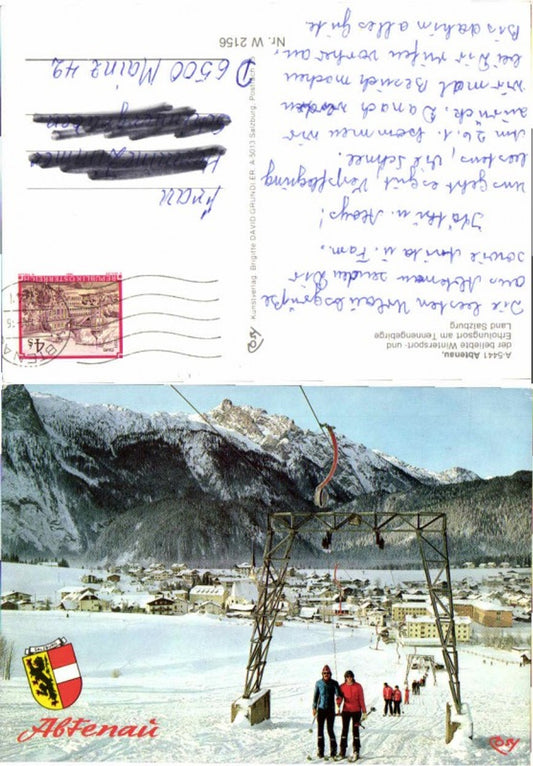 A-5441 Abtenau,
der beliebte Wintersport- und
Erholungsort am Tennengebirge
Land Salzburg
Die besten Urlaubsgrüße
aus Abtenau senden Dir
sowie Anita u. Fam.
uns geht es gut, Verpflegung
bestens, viel Schnee.
Am 26.1. kommen wir
zurück. Danach
wir mal Besuch machen
bei Dir rufen vorher an.
Bis dahin alles Gute
Kunstverlag Brigitte DAVID GRÜNDLER, A-5013 Salzburg, Postfach
Cosy
Nr. W 2156
REPUBLIK ÖSTERREICH
4 S
Frau
D 6500 Mainz 42
SALZBURG
Abtenau
Cosy